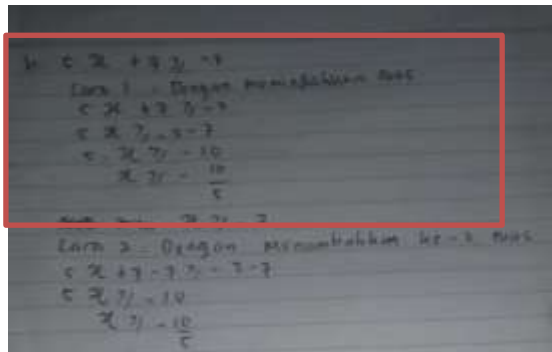 5x + 7 ≥ -3
Cara 1 - Dengan memindahkan ruas
5x + 7 ≥ -3
5x ≥ -3 - 7
5x ≥ -10
x ≥ -10/5
x ≥ -2
Cara 2 - Dengan Menambahkan ke-2 ruas
5x + 7 - 7 ≥ -3 - 7
5x ≥ -10
x ≥ -10/5